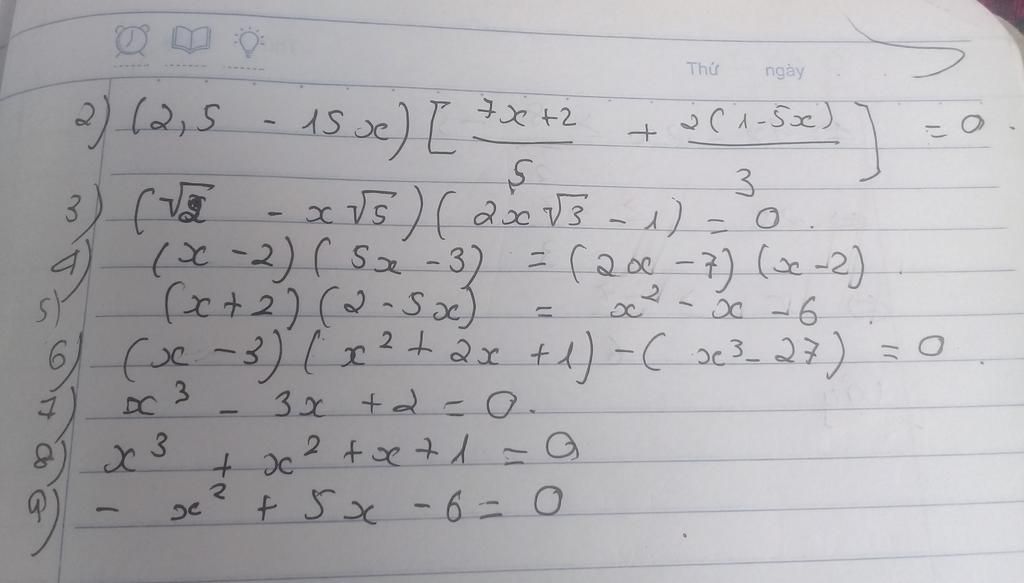 Thứ ngày
2) (2,5 - 15x) [ (7x+2)/5 + 2(1-5x)/3 ] = 0.
3) (√2 - x√5)(2x√3 - 1) = 0.
4) (x - 2)(5x - 3) = (2x - 7)(x - 2).
5) (x + 2)(2 - 5x) = x² - x - 6.
6) (x - 3)(x² + 2x + 1) - (x³ - 27) = 0.
7) x³ - 3x + 2 = 0.
8) x³ + x² + x + 1 = 0
9) - x² + 5x - 6 = 0